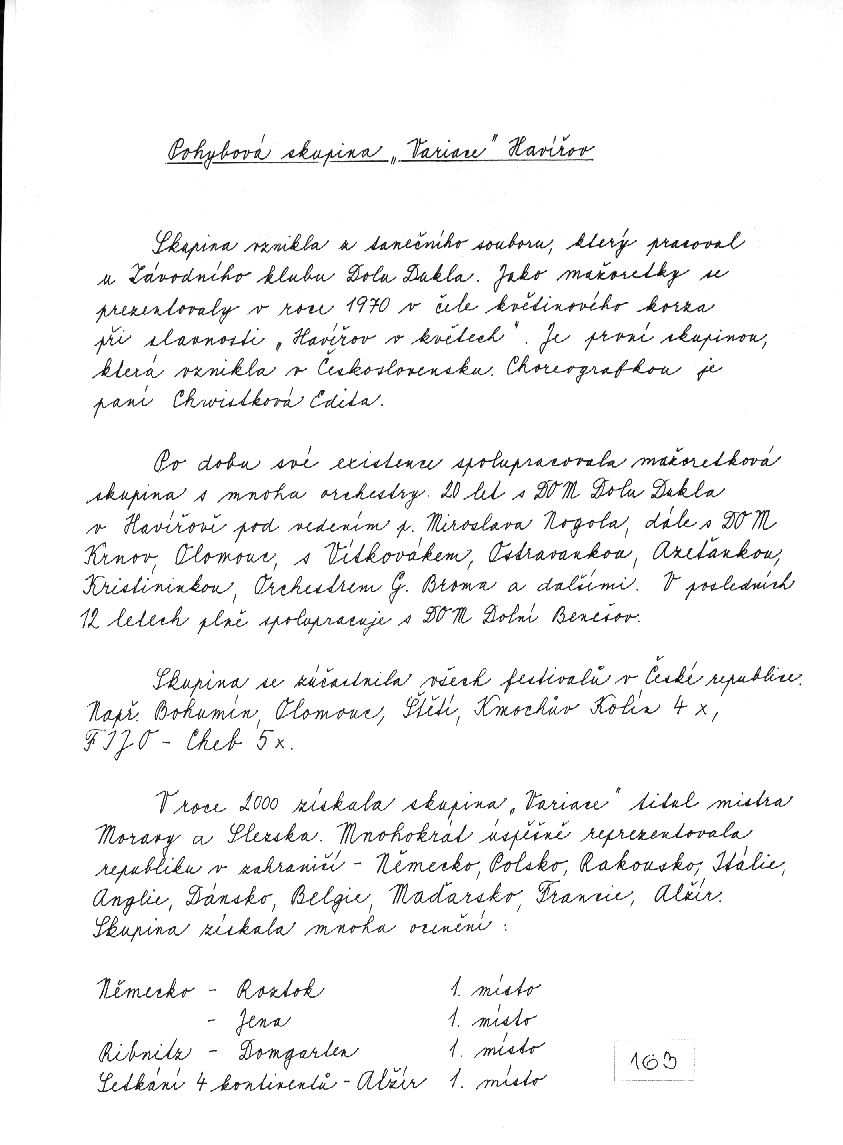 Pohybová skupina „Variace" Havířov
Skupina vznikla z tanečního souboru, který pracoval
u Závodního klubu Dolu Dukla. Jako mažoretky se
prezentovaly v roce 1970 v čele květinového korza
při slavnosti „Havířov v květech". Je první skupinou,
která vznikla v Československu. Choreografkou je
paní Chwistková Edita.
Po dobu své existence spolupracovala mažoretková
skupina s mnoha orchestry. 20 let s DOM Dolu Dukla
v Havířově pod vedením p. Miroslava Nogola, dále s DOM
Krnov, Olomouc, s Vítkovákem, Ostravankou, Azeťankou,
Kristininkou, Orchestrem G. Broma a dalšími. V posledních
12 letech plně spolupracuje s DOM Dolní Benešov.
Skupina se zúčastnila všech festivalů v České republice.
Např. Bohumín, Olomouc, Štětí, Kmochův Kolín 4 x,
FIJO - Cheb 5x.
V roce 2000 získala skupina „Variace" titul mistra
Moravy a Slezska. Mnohokrát úspěšně reprezentovala
republiku v zahraničí - Německo, Polsko, Rakousko, Itálie,
Anglie, Dánsko, Belgie, Maďarsko, Francie, Alžír.
Skupina získala mnoha ocenění :
Německo - Roztok 1. místo
- Jena 1. místo
Ribnitz - Domgarten 1. místo
Setkání 4 kontinentů - Alžír 1. místo
163